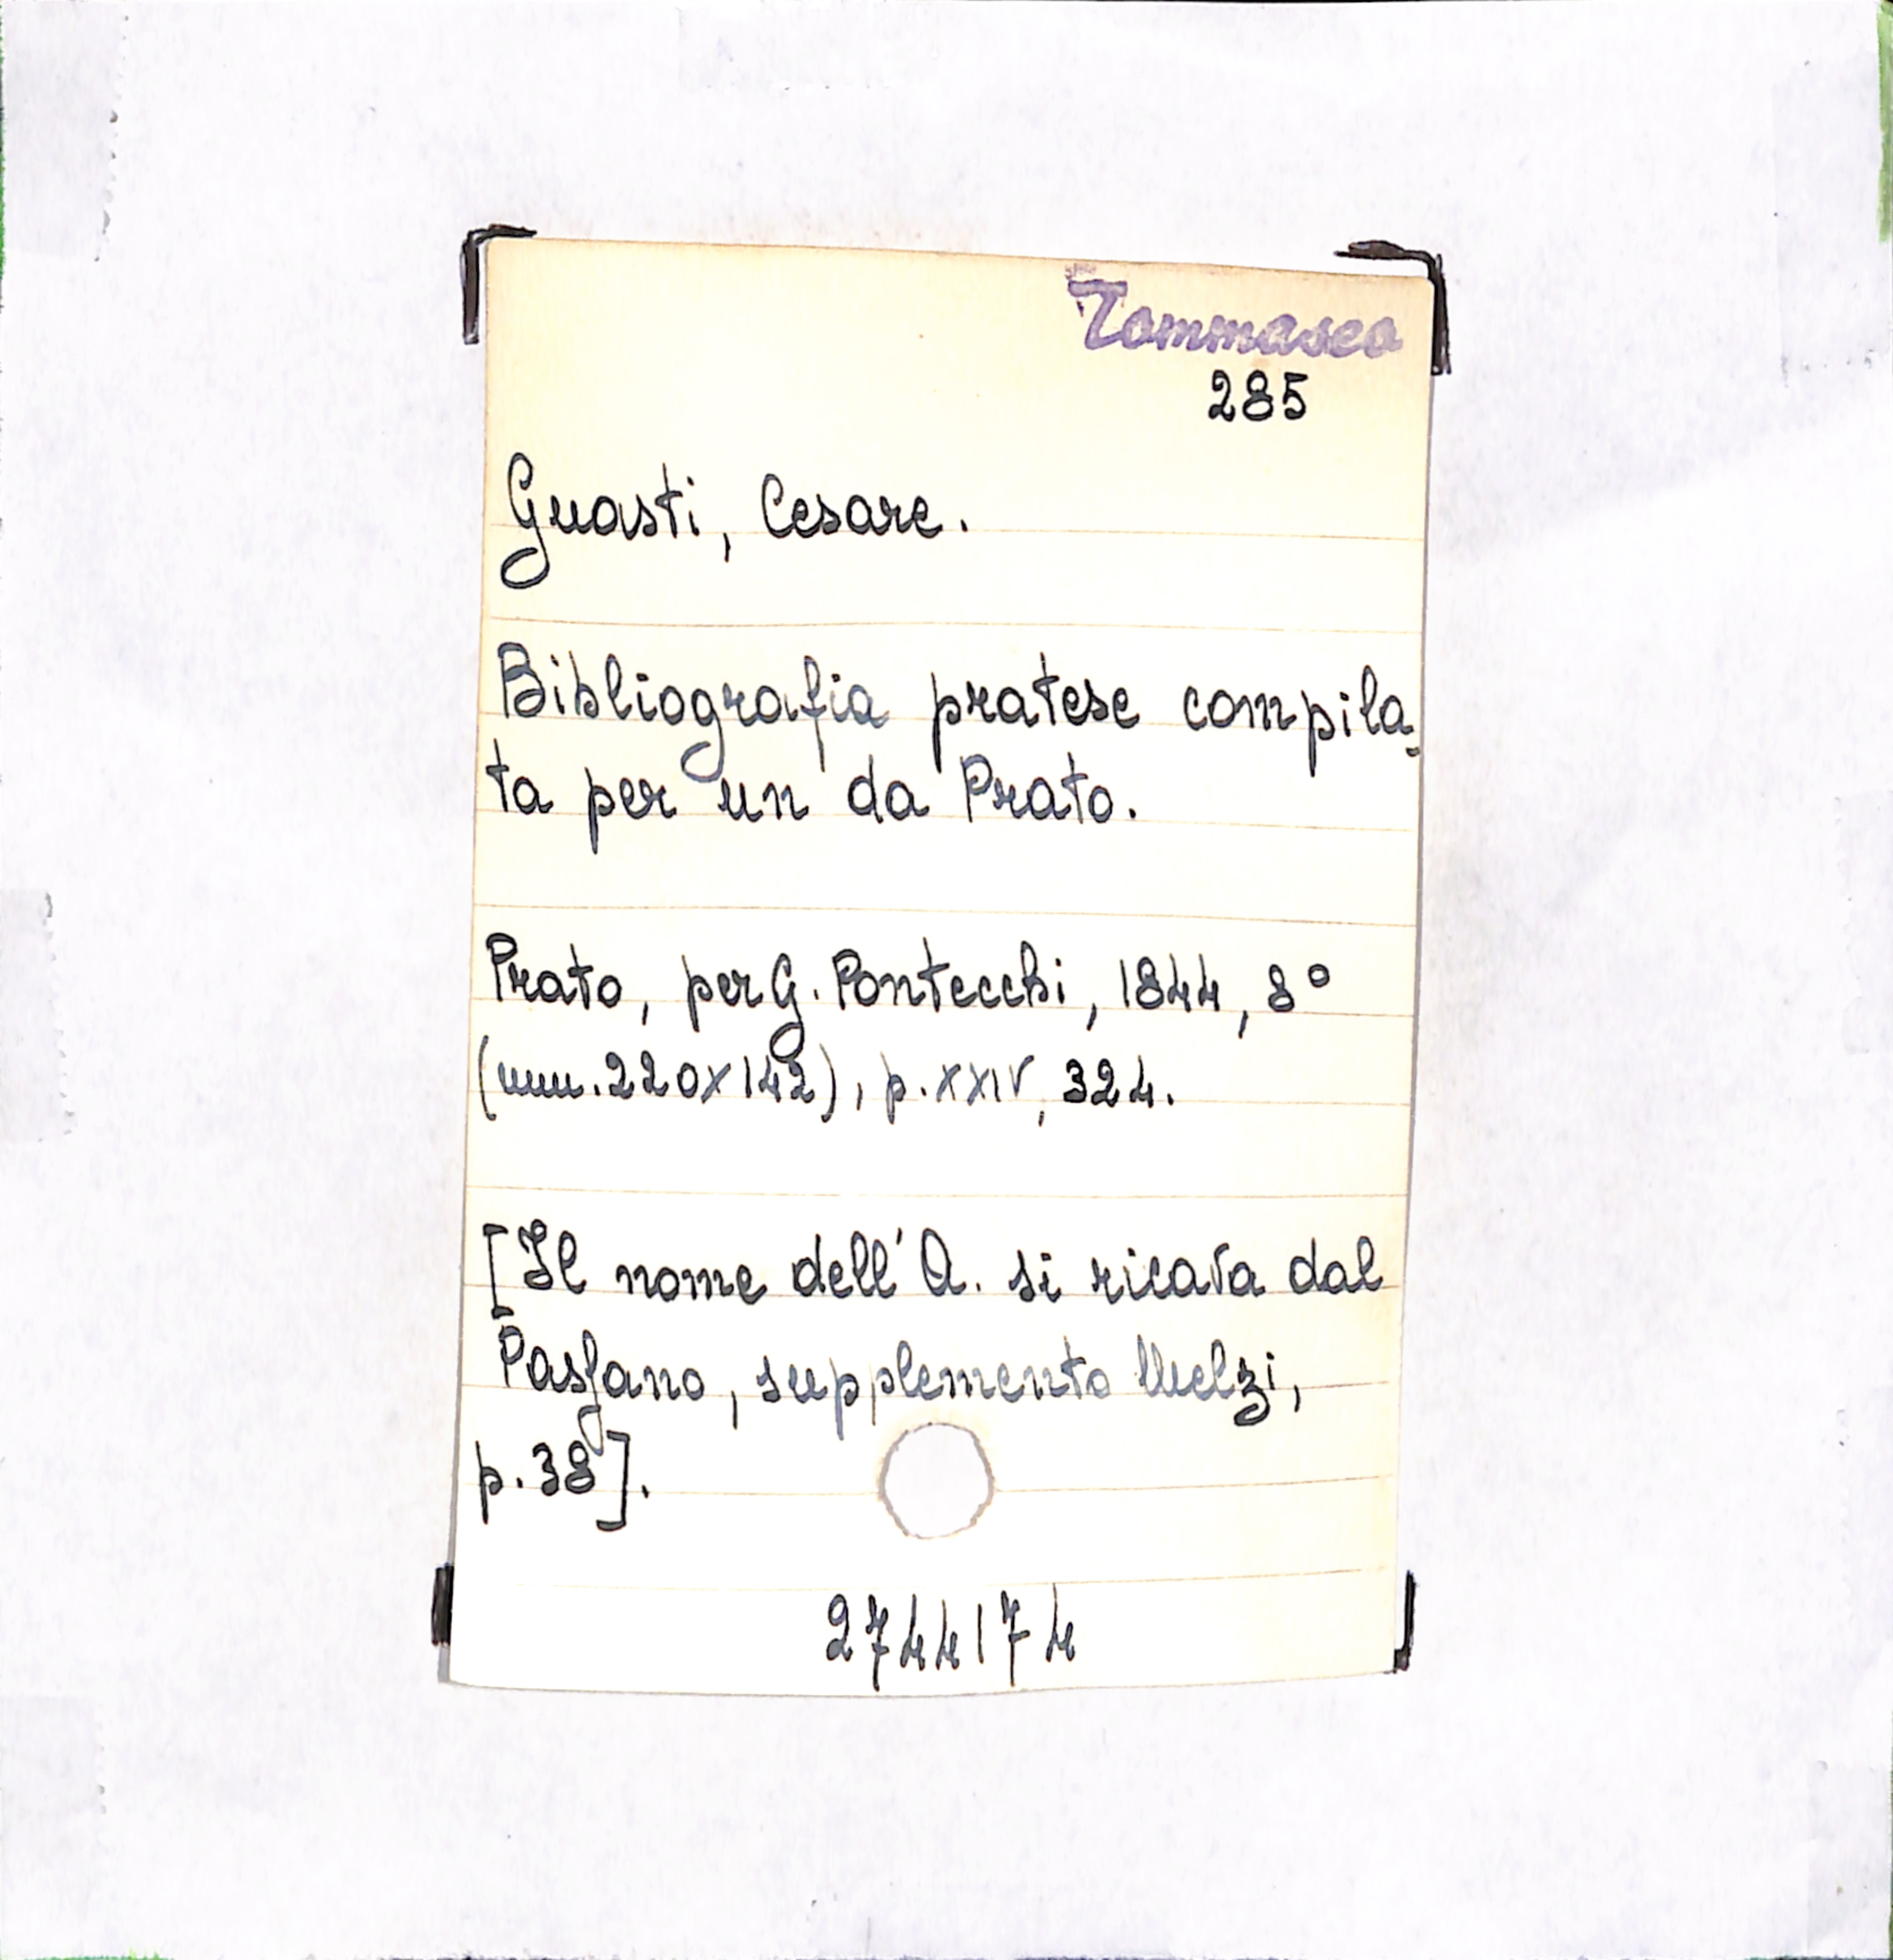 Tommaseo
285
Guasti, Cesare.
Bibliografia pratese compila-
ta per un da Prato.
Prato, per G. Pontecchi, 1844, 8°
(mm. 220x142), p. XXIV, 324.
[Il nome dell'A. si ricava dal
Passano, supplemento Melzi,
p. 38].
2744174